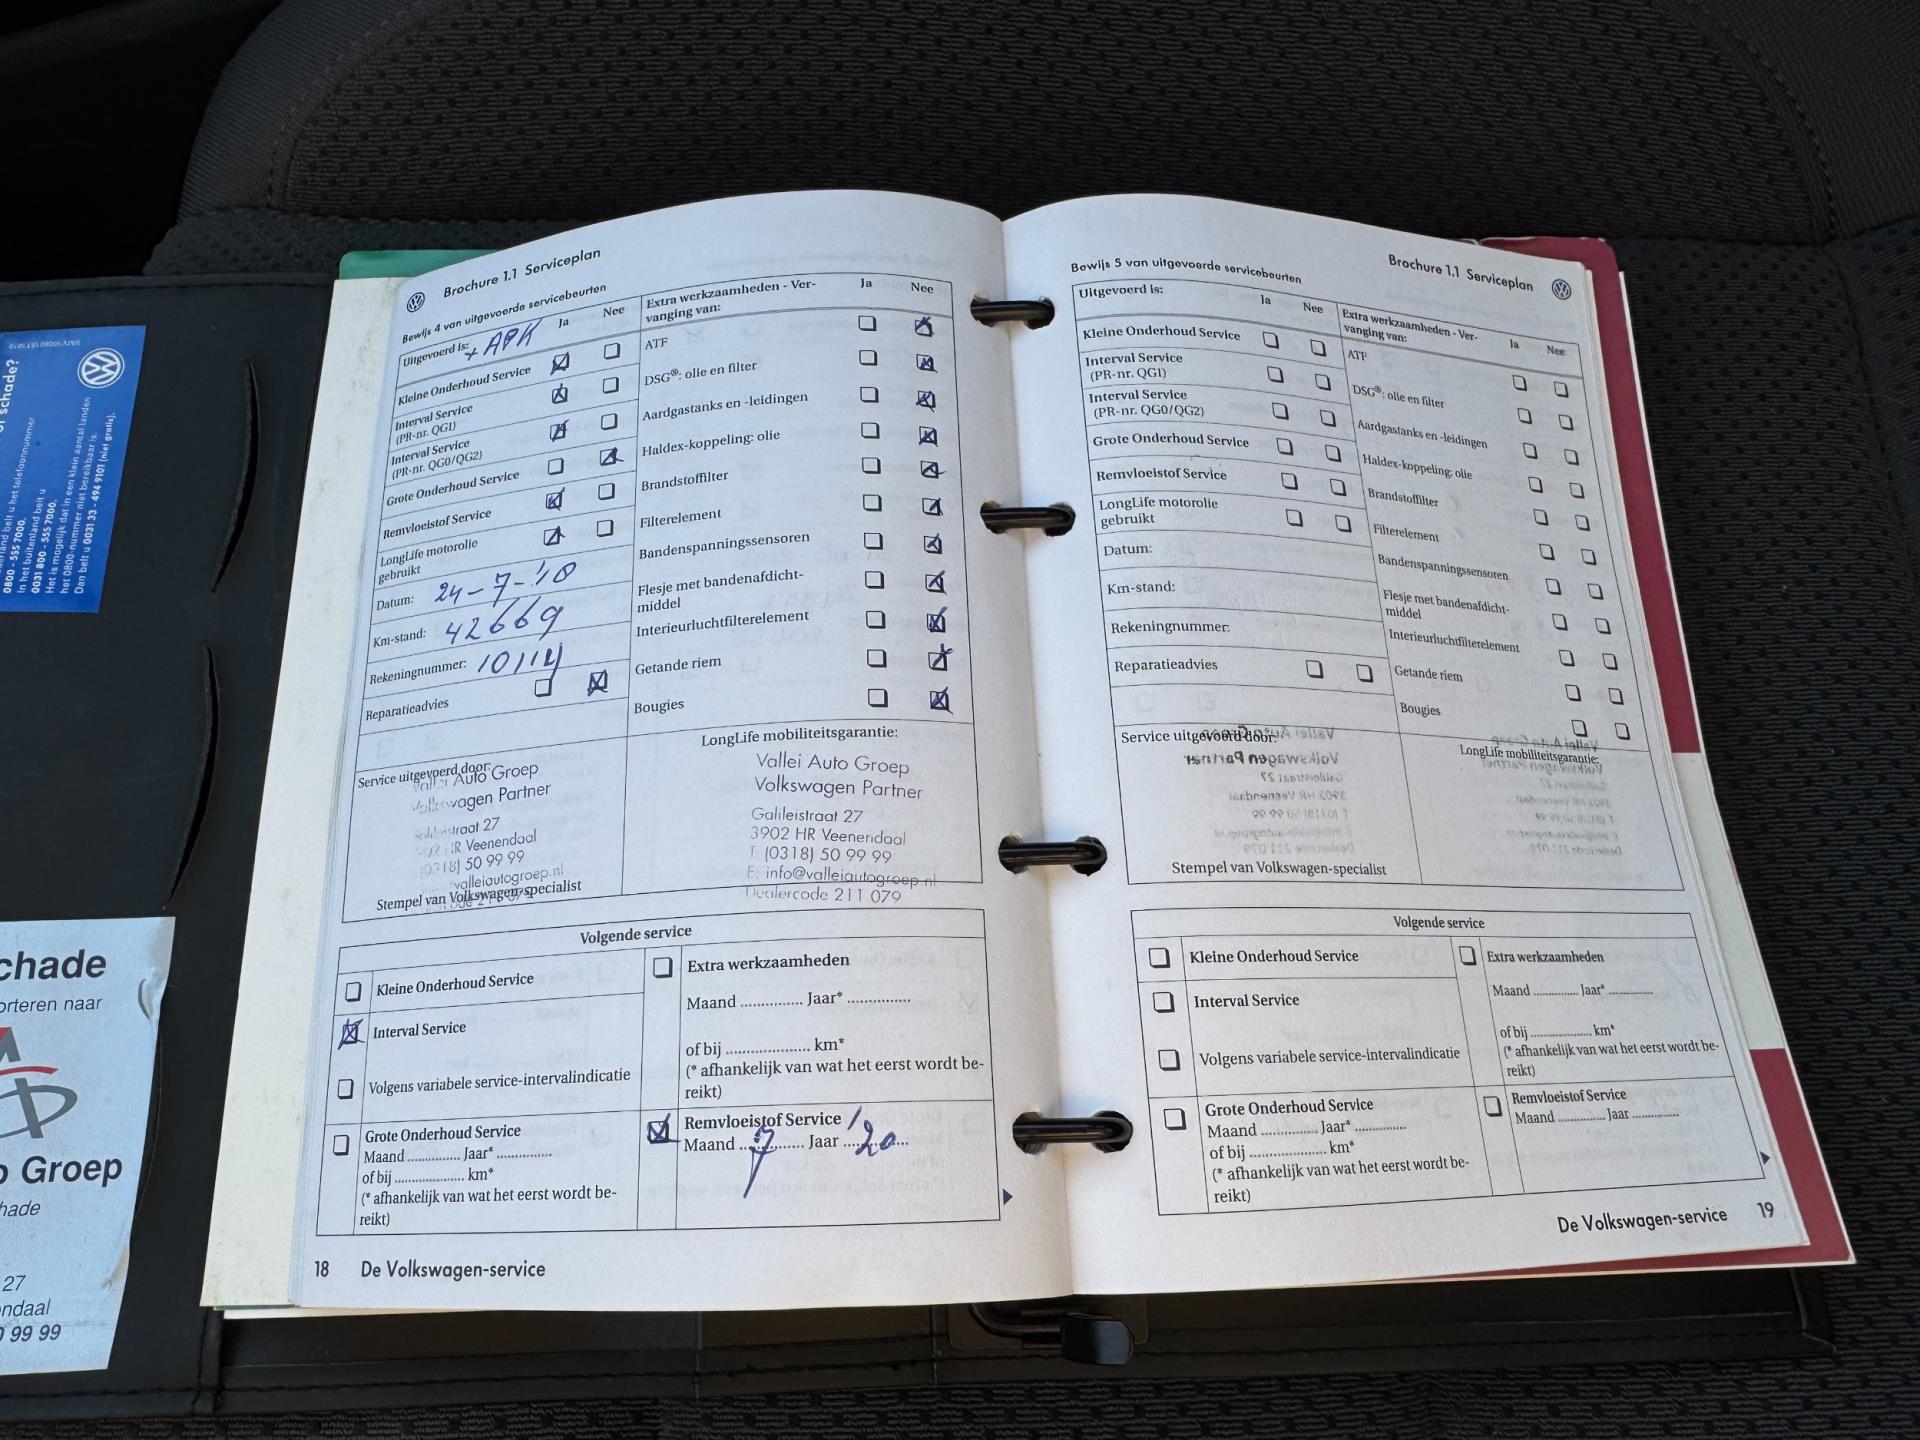 of schade?
land belt u het telefoonnummer
0800 - 555 7000.
In het buitenland belt u
0031 800 - 555 7000.
Het is mogelijk dat in een klein aantal landen
het 0800-nummer niet bereikbaar is.
Dan belt u 0031 33 - 494 9101 (niet gratis).
chade
orteren naar
o Groep
hade
27
ndaal
0 99 99
Brochure 1.1 Serviceplan
Bewijs 4 van uitgevoerde servicebeurten
Uitgevoerd is: + APK Ja Nee
Kleine Onderhoud Service
Interval Service
(PR-nr. QG1)
Interval Service
(PR-nr. QG0/QG2)
Grote Onderhoud Service
Remvloeistof Service
LongLife motorolie
gebruikt
Datum: 24-7-'18
Km-stand: 42669
Rekeningnummer: 10114
Reparatieadvies
Extra werkzaamheden - Ver-
vanging van: Ja Nee
ATF
DSG®: olie en filter
Aardgastanks en -leidingen
Haldex-koppeling: olie
Brandstoffilter
Filterelement
Bandenspanningssensoren
Flesje met bandenafdicht-
middel
Interieurluchtfilterelement
Getande riem
Bougies
Service uitgevoerd door:
Vallei Auto Groep
Volkswagen Partner
Galileistraat 27
3902 HR Veenendaal
(0318) 50 99 99
valleiautogroep.nl
Stempel van Volkswagen-specialist
LongLife mobiliteitsgarantie:
Vallei Auto Groep
Volkswagen Partner
Galileistraat 27
3902 HR Veenendaal
T: (0318) 50 99 99
E: info@valleiautogroep.nl
Dealercode 211 079
Volgende service
Kleine Onderhoud Service
Interval Service
Volgens variabele service-intervalindicatie
Grote Onderhoud Service
Maand .............. Jaar* ..............
of bij ..................... km*
(* afhankelijk van wat het eerst wordt be-
reikt)
Extra werkzaamheden
Maand .............. Jaar* ..............
of bij ..................... km*
(* afhankelijk van wat het eerst wordt be-
reikt)
Remvloeistof Service
Maand 7 Jaar 20
18 De Volkswagen-service
Brochure 1.1 Serviceplan
Bewijs 5 van uitgevoerde servicebeurten
Uitgevoerd is: Ja Nee
Kleine Onderhoud Service
Interval Service
(PR-nr. QG1)
Interval Service
(PR-nr. QG0/QG2)
Grote Onderhoud Service
Remvloeistof Service
LongLife motorolie
gebruikt
Datum:
Km-stand:
Rekeningnummer:
Reparatieadvies
Extra werkzaamheden - Ver-
vanging van: Ja Nee
ATF
DSG®: olie en filter
Aardgastanks en -leidingen
Haldex-koppeling: olie
Brandstoffilter
Filterelement
Bandenspanningssensoren
Flesje met bandenafdicht-
middel
Interieurluchtfilterelement
Getande riem
Bougies
Service uitgevoerd door:
Stempel van Volkswagen-specialist
LongLife mobiliteitsgarantie:
Volgende service
Kleine Onderhoud Service
Interval Service
Volgens variabele service-intervalindicatie
Grote Onderhoud Service
Maand .............. Jaar* ..............
of bij ..................... km*
(* afhankelijk van wat het eerst wordt be-
reikt)
Extra werkzaamheden
Maand .............. Jaar* ..............
of bij ..................... km*
(* afhankelijk van wat het eerst wordt be-
reikt)
Remvloeistof Service
Maand .............. Jaar ..............
De Volkswagen-service 19